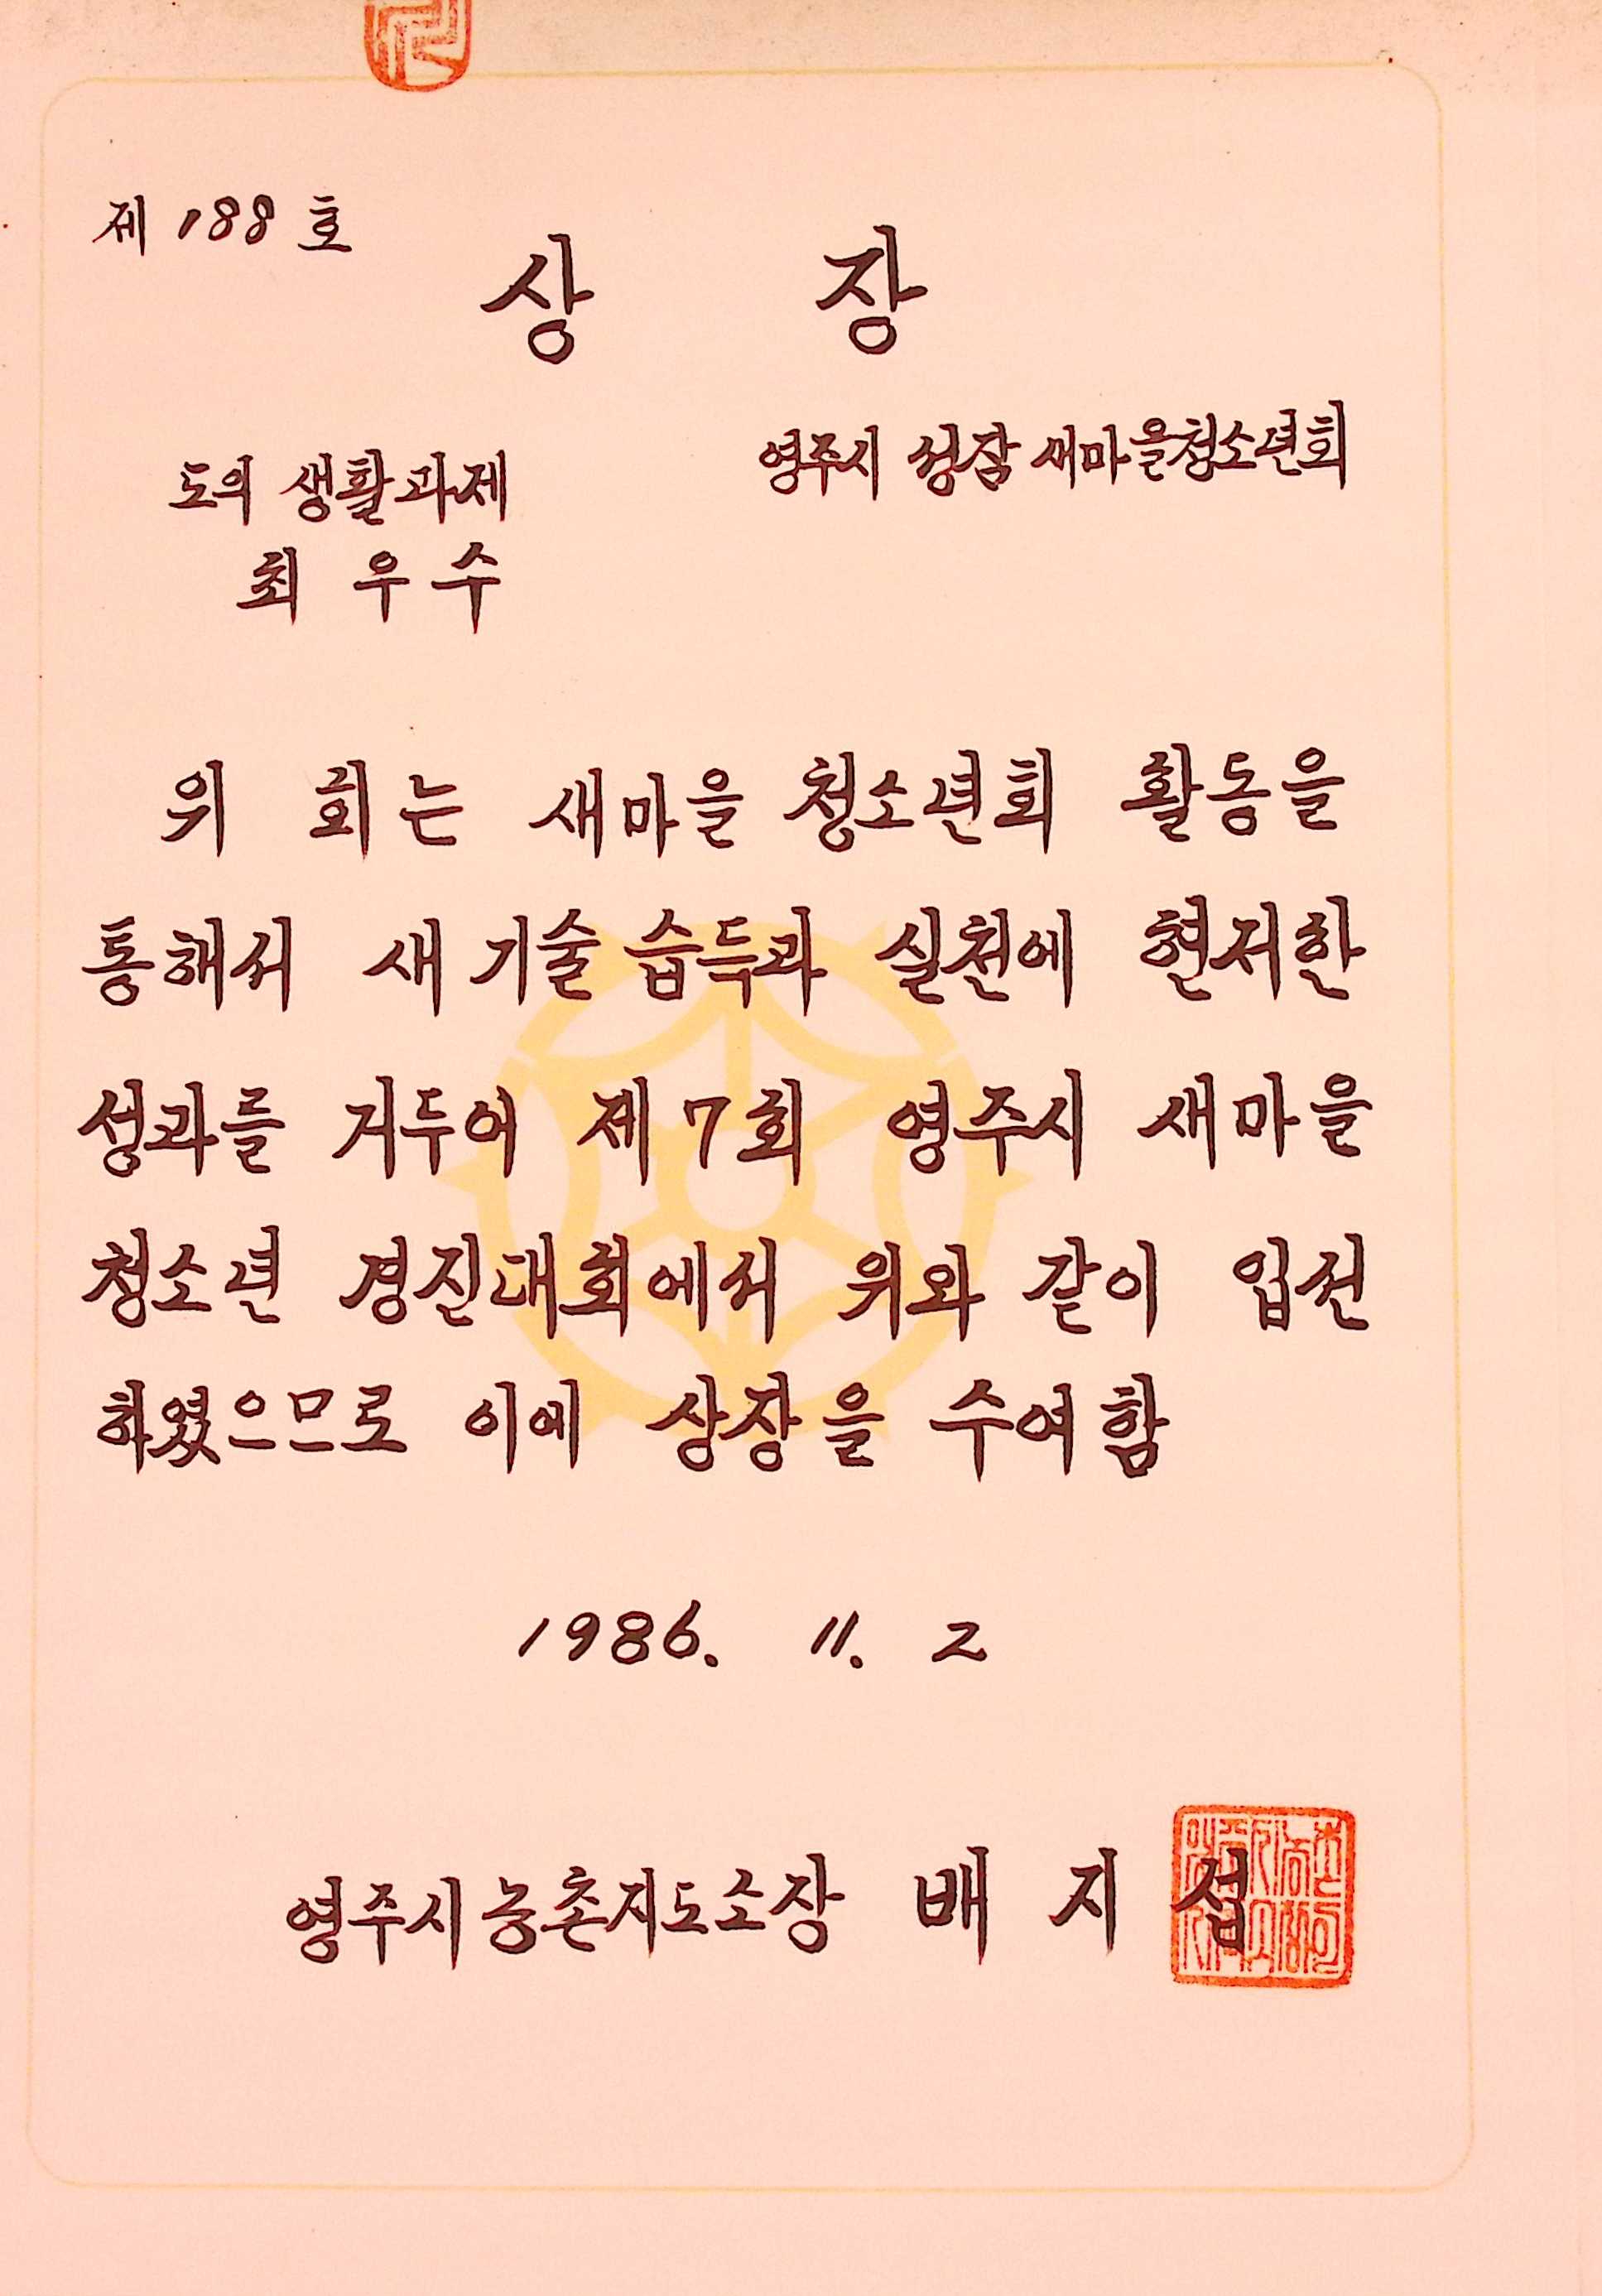 제 188 호
상 장
영주시 성잠 새마을청소년회
도의 생활과제
최 우 수
위 회는 새마을 청소년회 활동을
통해서 새 기술 습득과 실천에 현저한
성과를 거두어 제 7회 영주시 새마을
청소년 경진대회에서 위와 같이 입선
하였으므로 이에 상장을 수여함
1986. 11. 2
영주시농촌지도소장 배 지 섭